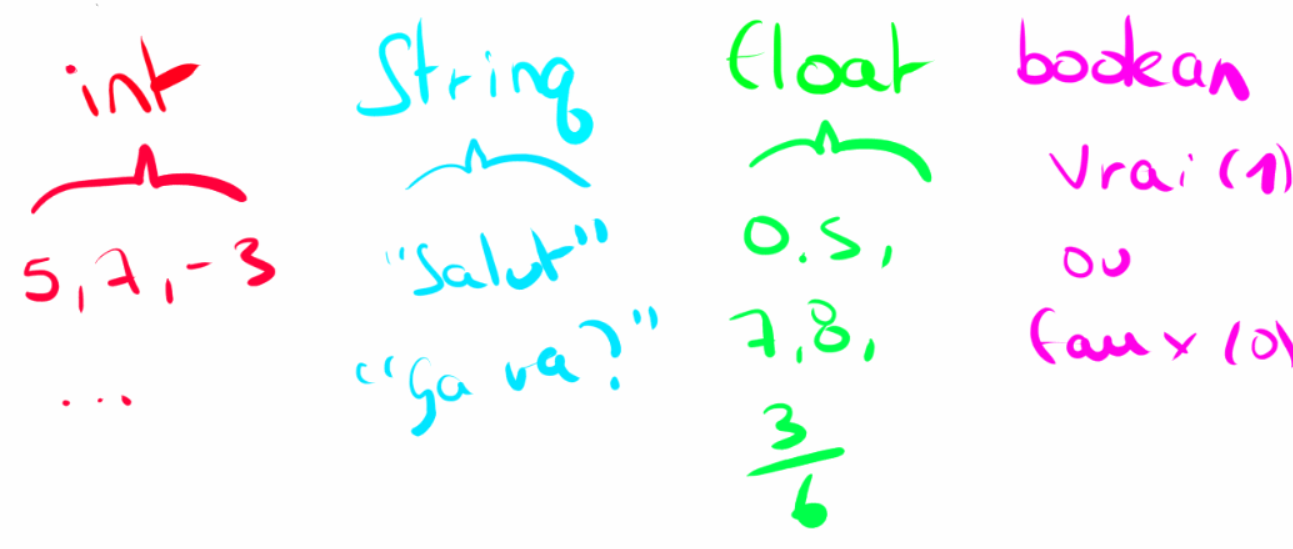 int
5, 7, -3
...
String
"Salut"
"ça va?"
float
0.5,
7,8,
3
6
boolean
Vrai (1)
ou
faux (0)